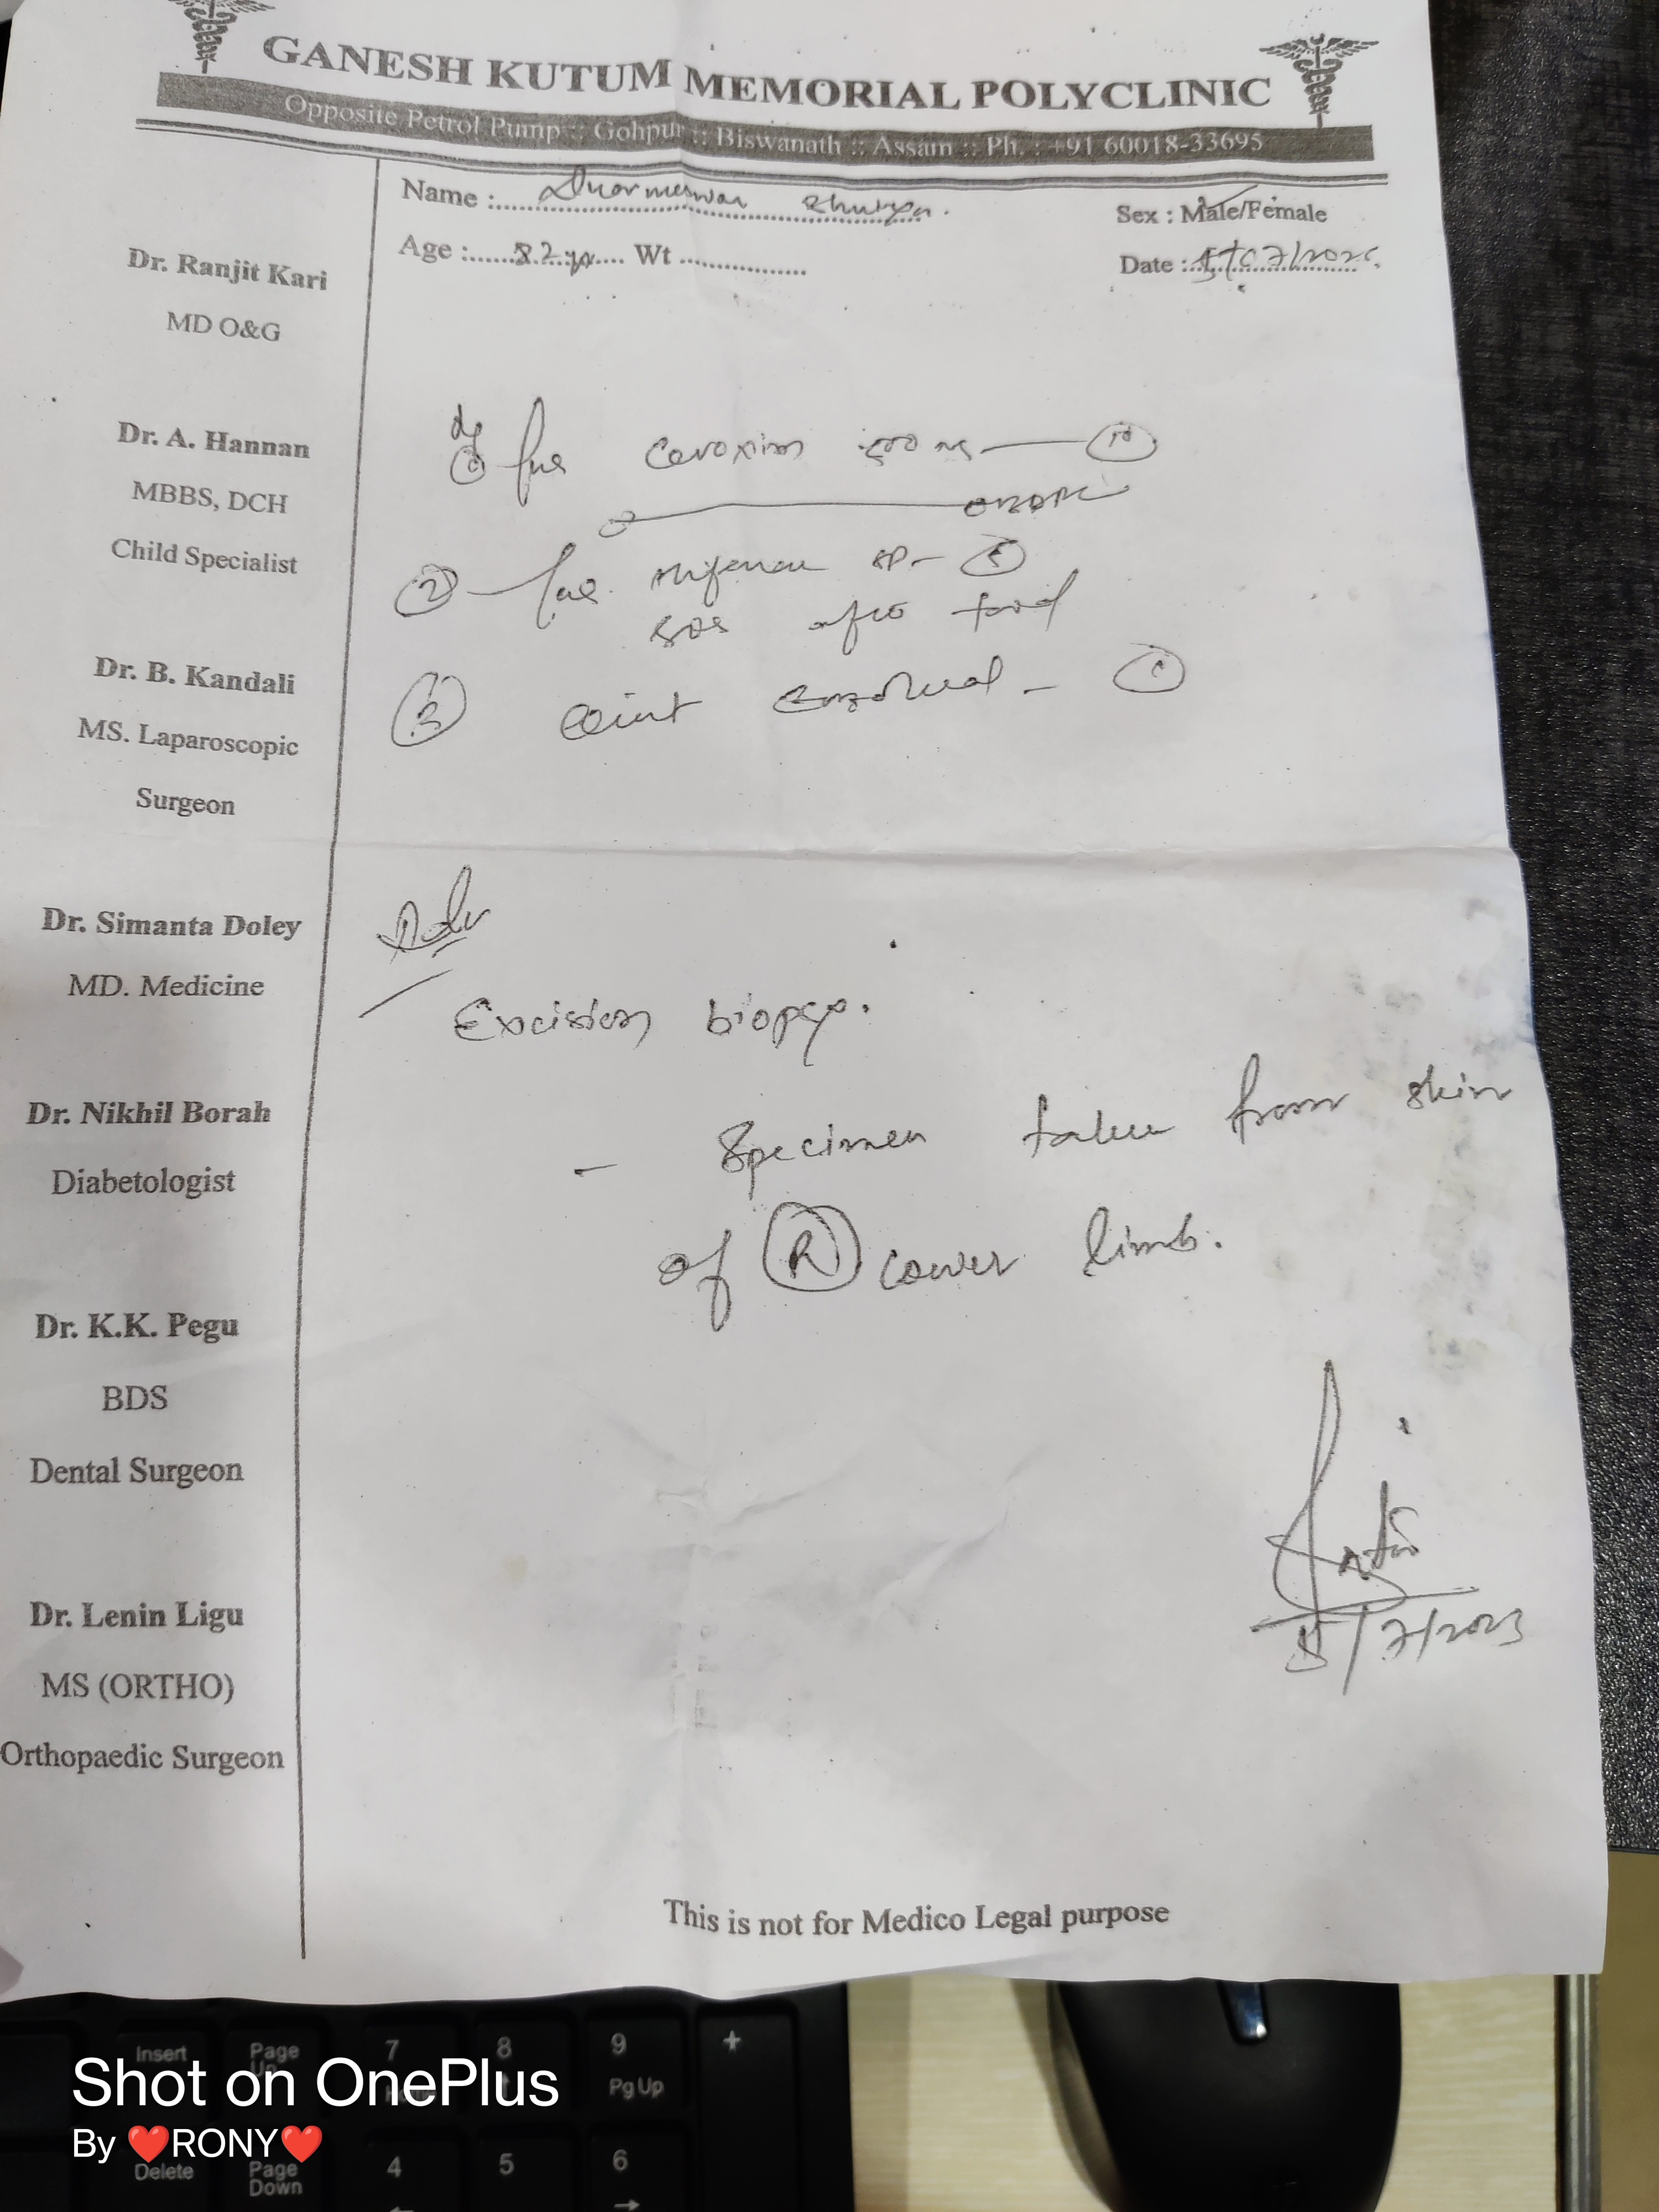 GANESH KUTUM MEMORIAL POLYCLINIC
Opposite Petrol Pump :: Gohpur :: Biswanath :: Assam :: Ph. : +91 60018-33695
Name : Dharmeswar Bhuiyan.
Sex : Male/Female
Age : 82 yr Wt
Date :
Dr. Ranjit Kari
MD O&G
Dr. A. Hannan
MBBS, DCH
Child Specialist
500 mg 10
2
SP - 5
SOS after food
Dr. B. Kandali
MS. Laparoscopic
Surgeon
3 oint - 1
Dr. Simanta Doley
MD. Medicine
Adv
Excision biopsy.
Dr. Nikhil Borah
Diabetologist
- Specimen taken from skin
of R lower limb.
Dr. K.K. Pegu
BDS
Dental Surgeon
Dr. Lenin Ligu
MS (ORTHO)
Orthopaedic Surgeon
5/7/2025
This is not for Medico Legal purpose
Insert
Page Up
7
8
9
+
Pg Up
Delete
Page Down
4
5
6
Shot on OnePlus
By ❤️RONY❤️